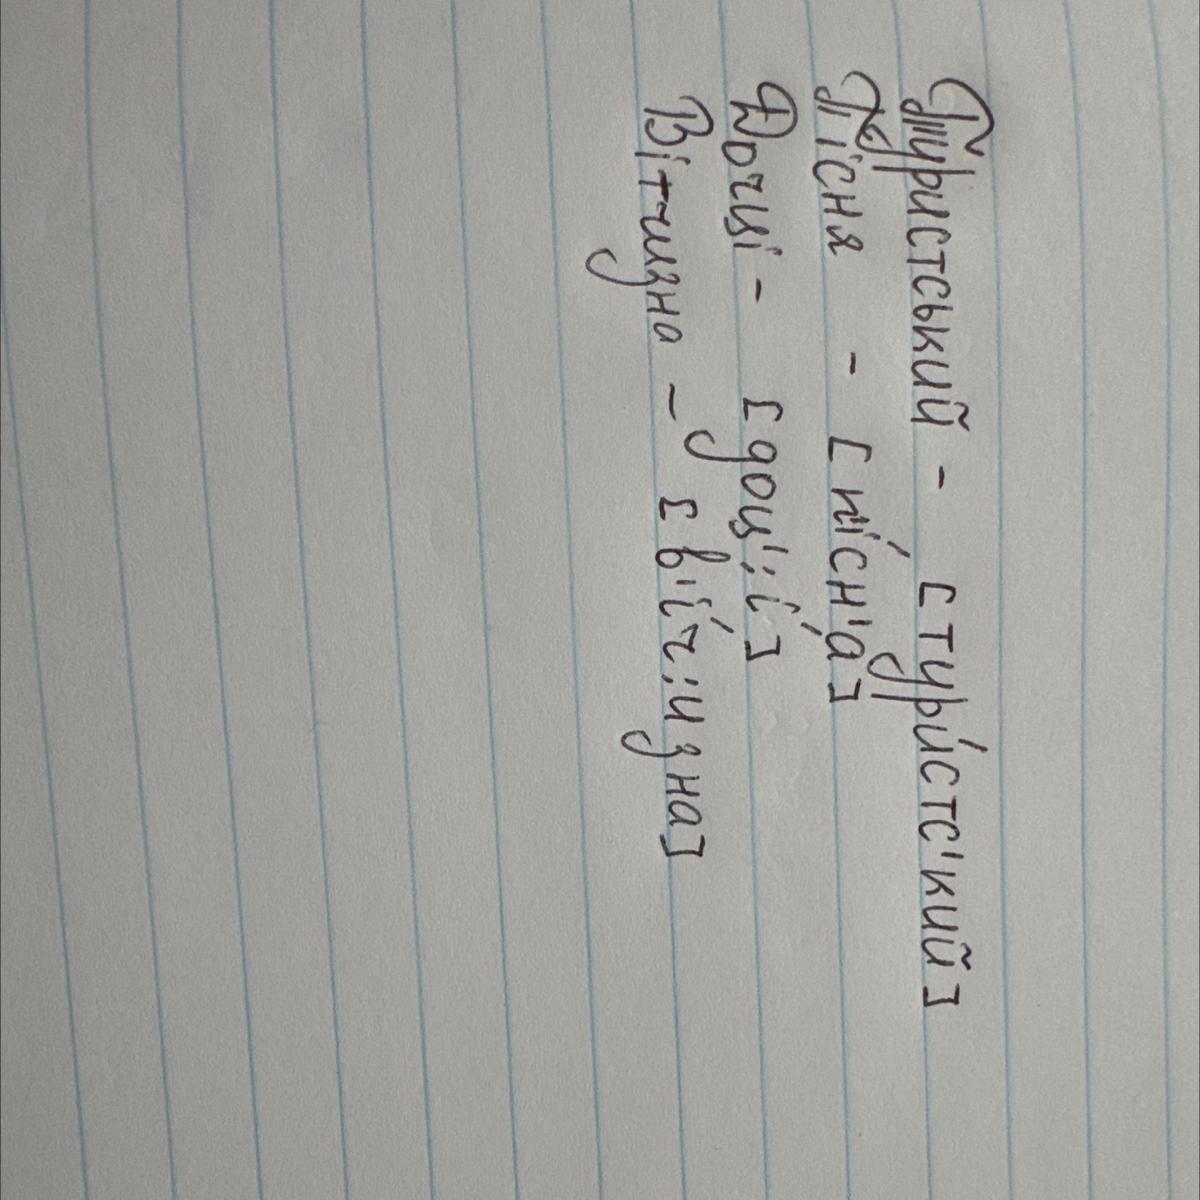 Туристський - [тури́стс'кий]
Пісня - [п'і́сн'а]
Дочці - [доц':і́]
Вітчизна - [в'іч:и́зна]